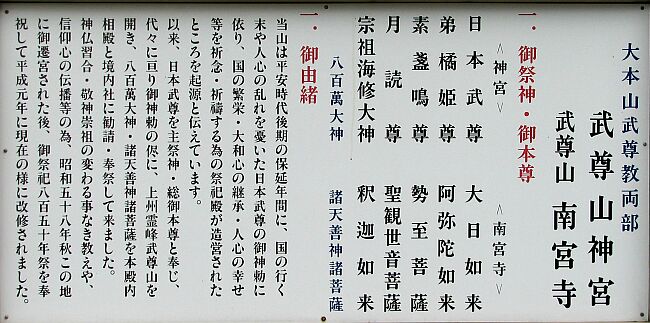 大本山武尊教両部
武尊山神宮
武尊山南宮寺
一．御祭神・御本尊
＜神宮＞　＜南宮寺＞
日本武尊　大日如来
弟橘姫尊　阿弥陀如来
素盞鳴尊　勢至菩薩
月読尊　聖観世音菩薩
宗祖海修大神　釈迦如来
八百萬大神　諸天善神諸菩薩
一．御由緒
当山は平安時代後期の保延年間に、国の行く
末や人心の乱れを憂いた日本武尊の御神勅に
依り、国の繁栄・大和心の継承・人心の幸せ
等を祈念・祈禱する為の祭祀殿が造営された
ところを起源と伝えています。
以来、日本武尊を主祭神・総御本尊と奉じ、
代々に亘り御神勅の侭に、上州霊峰武尊山を
開き、八百萬大神・諸天善神諸菩薩を本殿内
相殿と境内社に勧請・奉祭して来ました。
神仏習合・敬神崇祖の変わる事なき教えや、
信仰心の伝播等の為、昭和五十八年秋この地
に御遷宮された後、御祭祀八百五十年祭を奉
祝して平成元年に現在の様に改修されました。